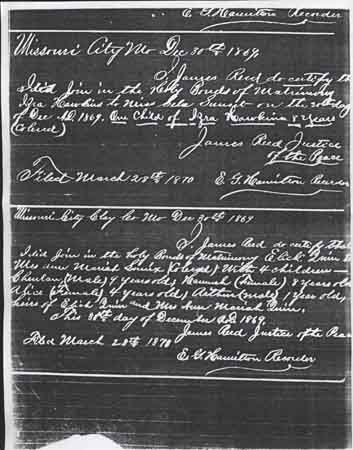 E. G. Hamilton Recorder
Missouri City Mo Dec 30th 1869
I, James Reed do certify that
I did join in the Holy Bonds of Matrimony
Ezra Hawkins to Miss on the 30th day
of Dec AD 1869. One Child of Ezra Hawkins 8 years
(Colored)
James Reed Justice
of the Peace
Filed March 28th 1870 E. G. Hamilton Recorder
Missouri City Clay Co Mo Dec 30th 1869
I, James Reed do certify that
I did join in the holy Bonds of Matrimony Elick Quinn to
Miss Ann Mariah (Colored) With 4 children—
(Male) 9 years old, Hannah (Female) 8 years old
(Female) 4 years old, Arthur (Male) 1 year old,
heirs of Elick Quinn and Mrs Ann Mariah Quinn.
This 30th day of December AD. 1869.
James Reed Justice of the Peace
Filed March 28th 1870
E. G. Hamilton Recorder